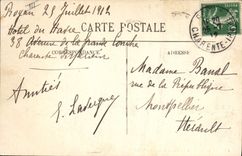 Royan 25 Juillet 1912
Hotel du Havre
CARTE POSTALE
38 Avenue de la Grande Conche
CORRESPONDANCE
ADRESSE
Charente Inférieure
Amitiés
E. Lavergne
Madame Banal
rue de la République
Montpellier
Hérault
CHARENTE